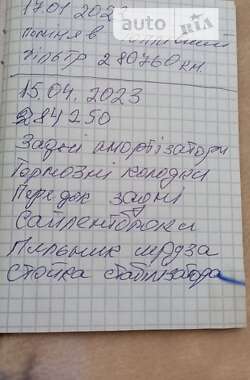 17.01 202
auto RIA
поміняв
фільтр 280760 км.
15.04.2023
284250
Задні амортізатори
Тормозні колодки
Перед задні
Сайлентблоки
Пильник шруза
Стойка стабілізатора